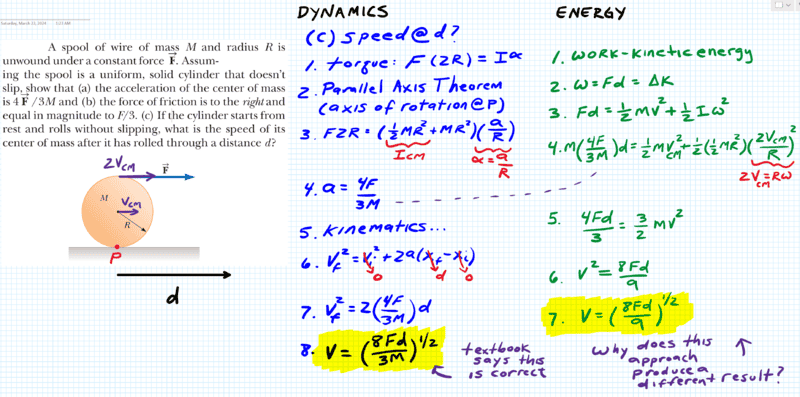 Saturday, March 23, 2024 5:21 AM
A spool of wire of mass M and radius R is
unwound under a constant force F⃗. Assum-
ing the spool is a uniform, solid cylinder that doesn't
slip, show that (a) the acceleration of the center of mass
is 4F⃗/3M and (b) the force of friction is to the right and
equal in magnitude to F/3. (c) If the cylinder starts from
rest and rolls without slipping, what is the speed of its
center of mass after it has rolled through a distance d?
2V_CM
F⃗
M
V_CM
R
P
d
DYNAMICS
(c) speed @ d?
1. torque: F(2R) = Iα
2. Parallel Axis Theorem
(axis of rotation @ P)
3. F2R = (½MR² + MR²)(a/R)
I_CM
α = a/R
4. a = 4F/3M
5. Kinematics...
6. V_f² = V_i² + 2a(x_f - x_i)
o d o
7. V_f² = 2(4F/3M)d
8. V = (8Fd/3M)^1/2
textbook
says this
is correct
ENERGY
1. WORK-Kinetic energy
2. W = Fd = ΔK
3. Fd = ½mv² + ½Iω²
4. M(4F/3M)d = ½mv_CM² + ½(½MR²)(2V_CM/R)²
2V_CM = Rω
5. 4Fd/3 = 3/2 mv²
6. V² = 8Fd/9
7. V = (8Fd/9)^1/2
Why does this
approach
produce a
different result?